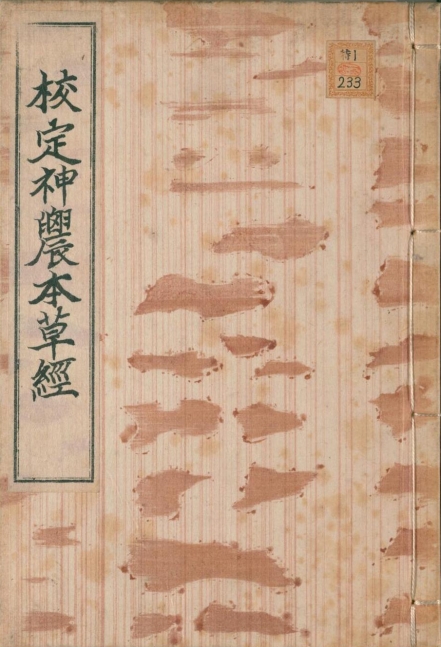 校定神農本草經
特
233